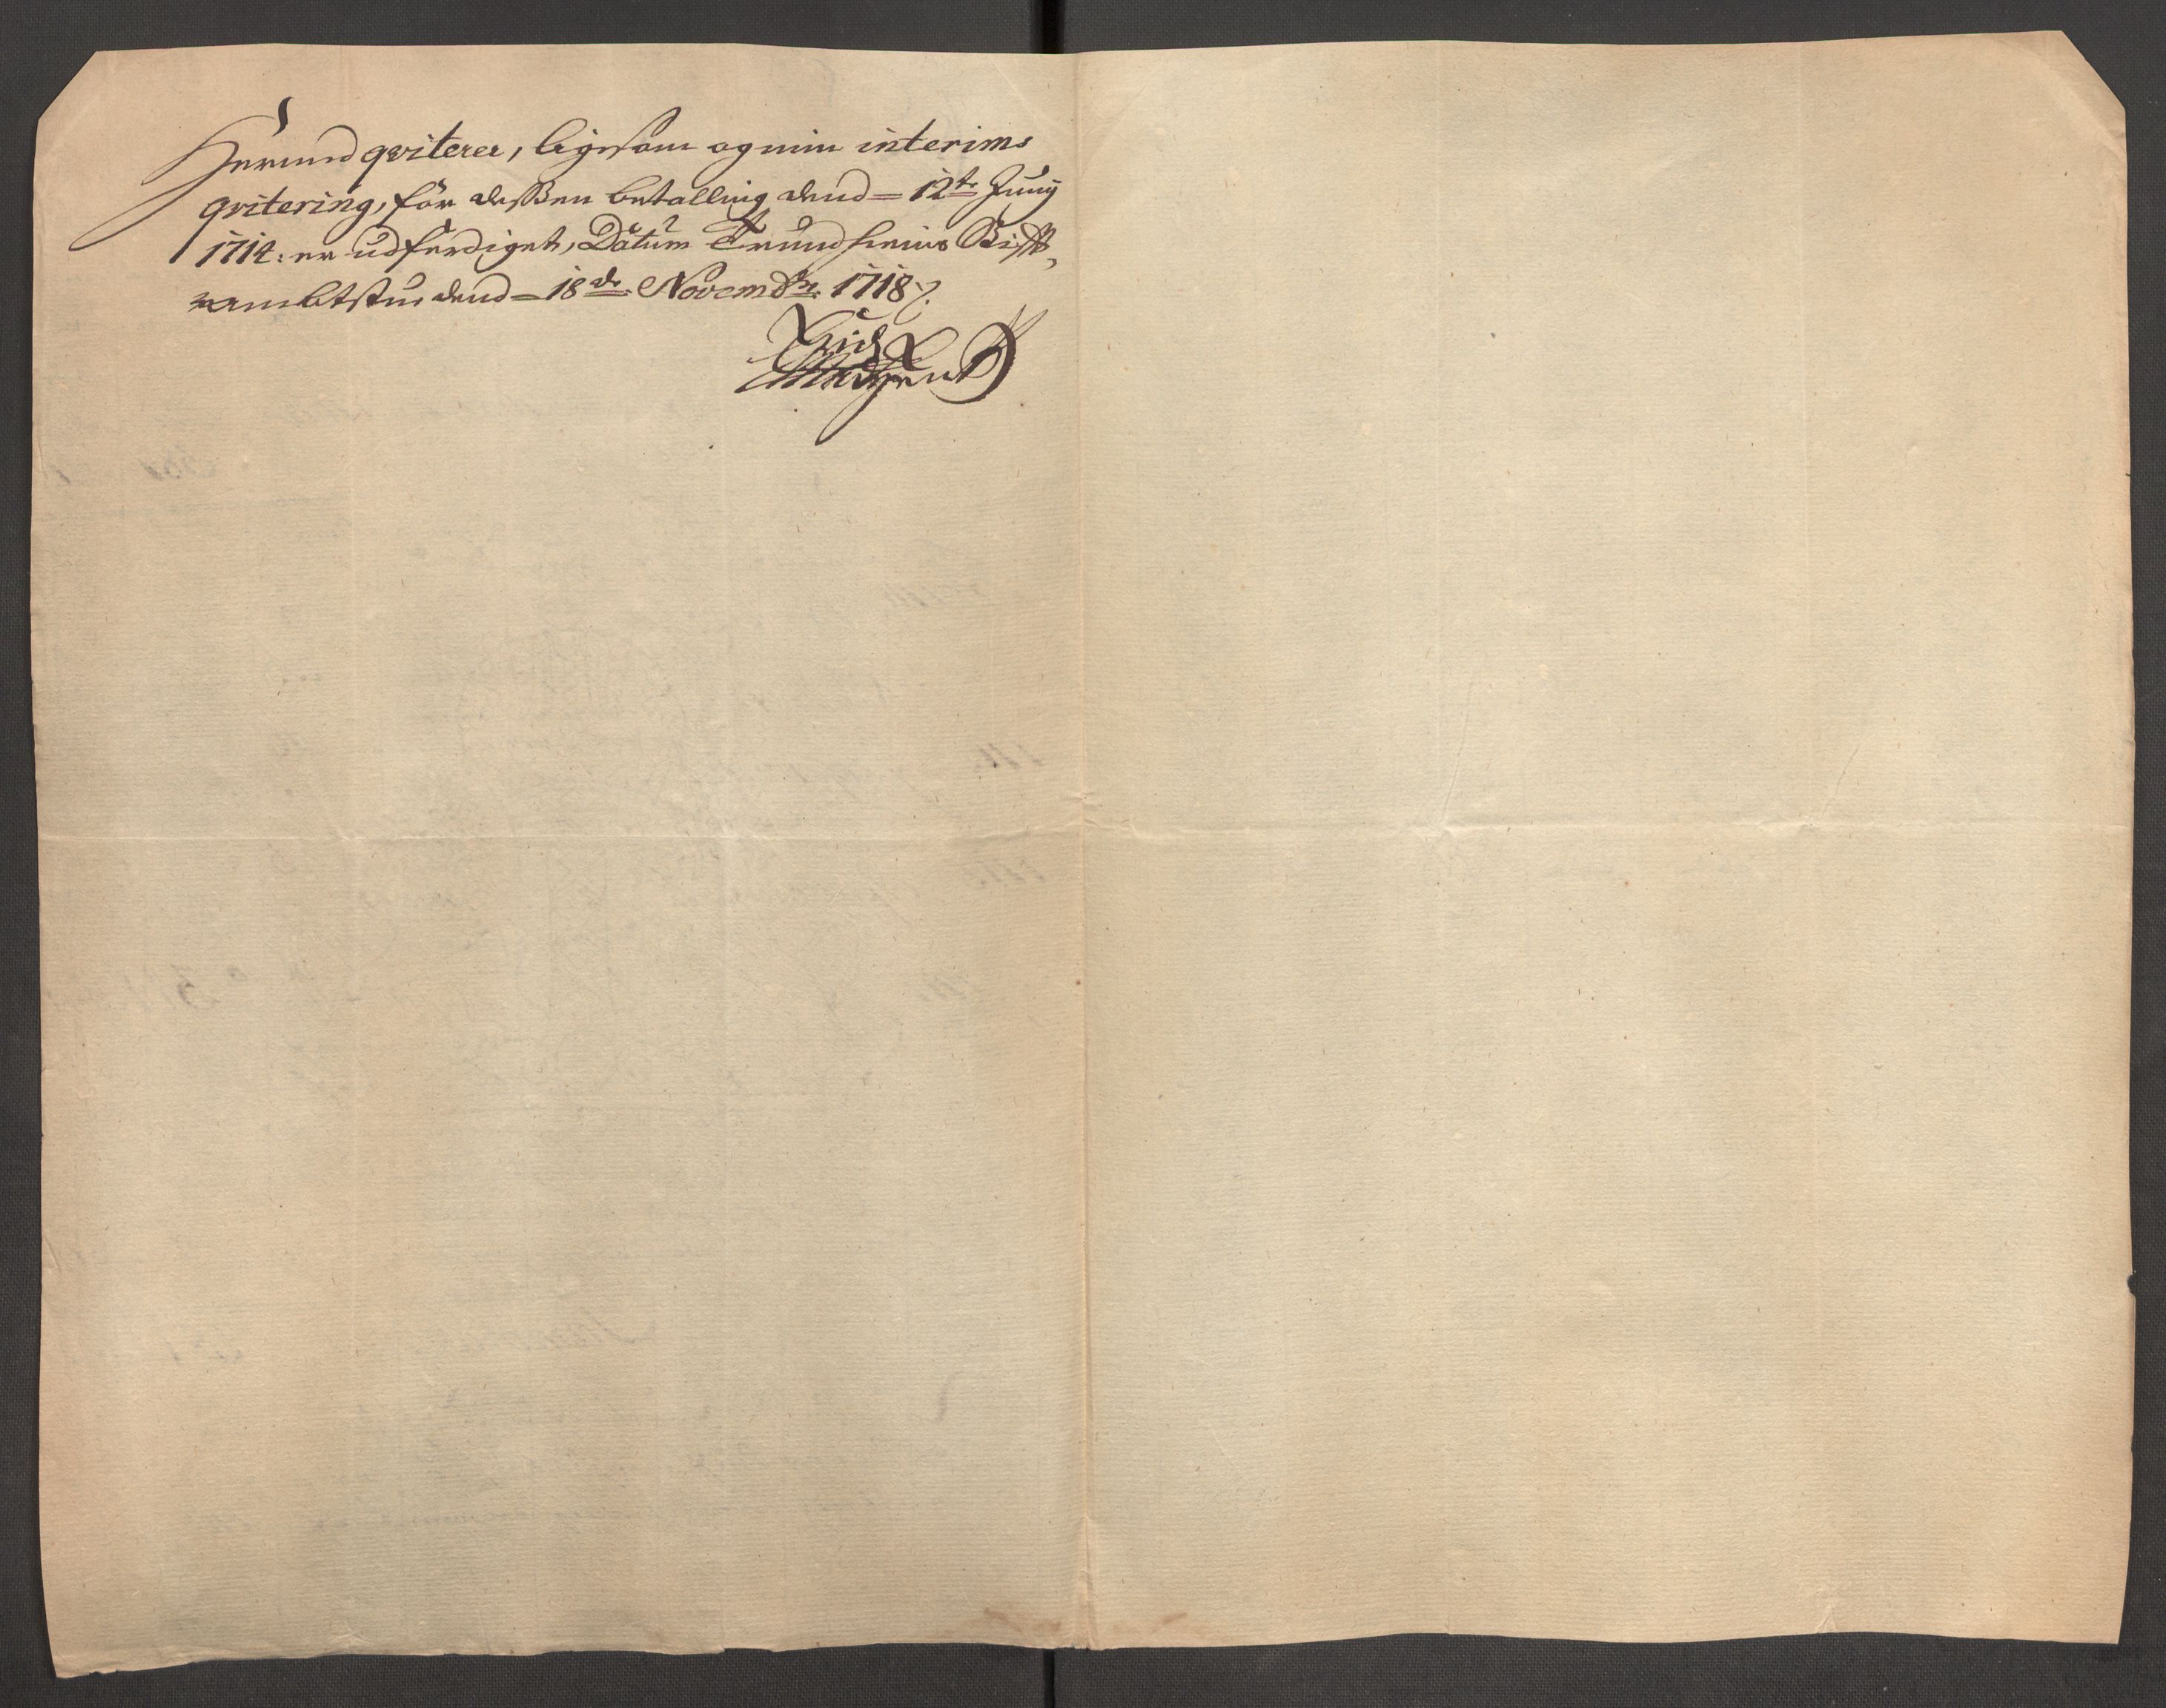 Hermed qviterer, ligesom og min interims
qvitering, for deßen betalling dend = 12te Junij
1714: er udferdiget, Datum Trundheims Stifft,,
ambtstue dend = 18de Novembr: 1718 ⁒
Erich